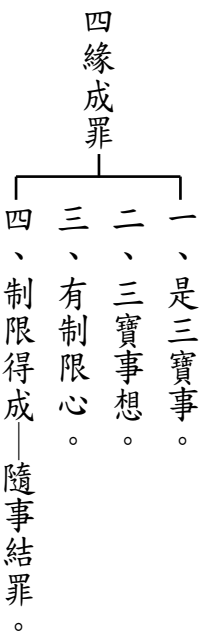 四緣成罪
一、是三寶事。
二、三寶事想。
三、有制限心。
四、制限得成—隨事結罪。